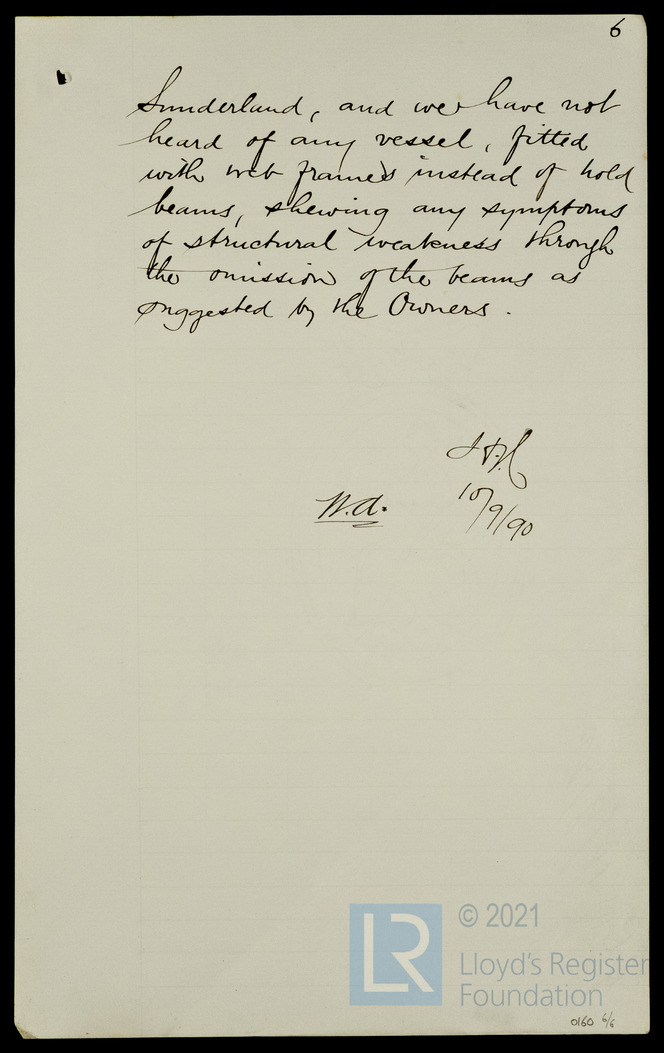 6
Sunderland, and we have not
heard of any vessel, fitted
with web frames instead of hold
beams, shewing any symptoms
of structural weakness through
the omission of the beams as
suggested by the Owners.
10/9/90
W.A.
LR
© 2021
Lloyd's Register
Foundation
0160 6/6